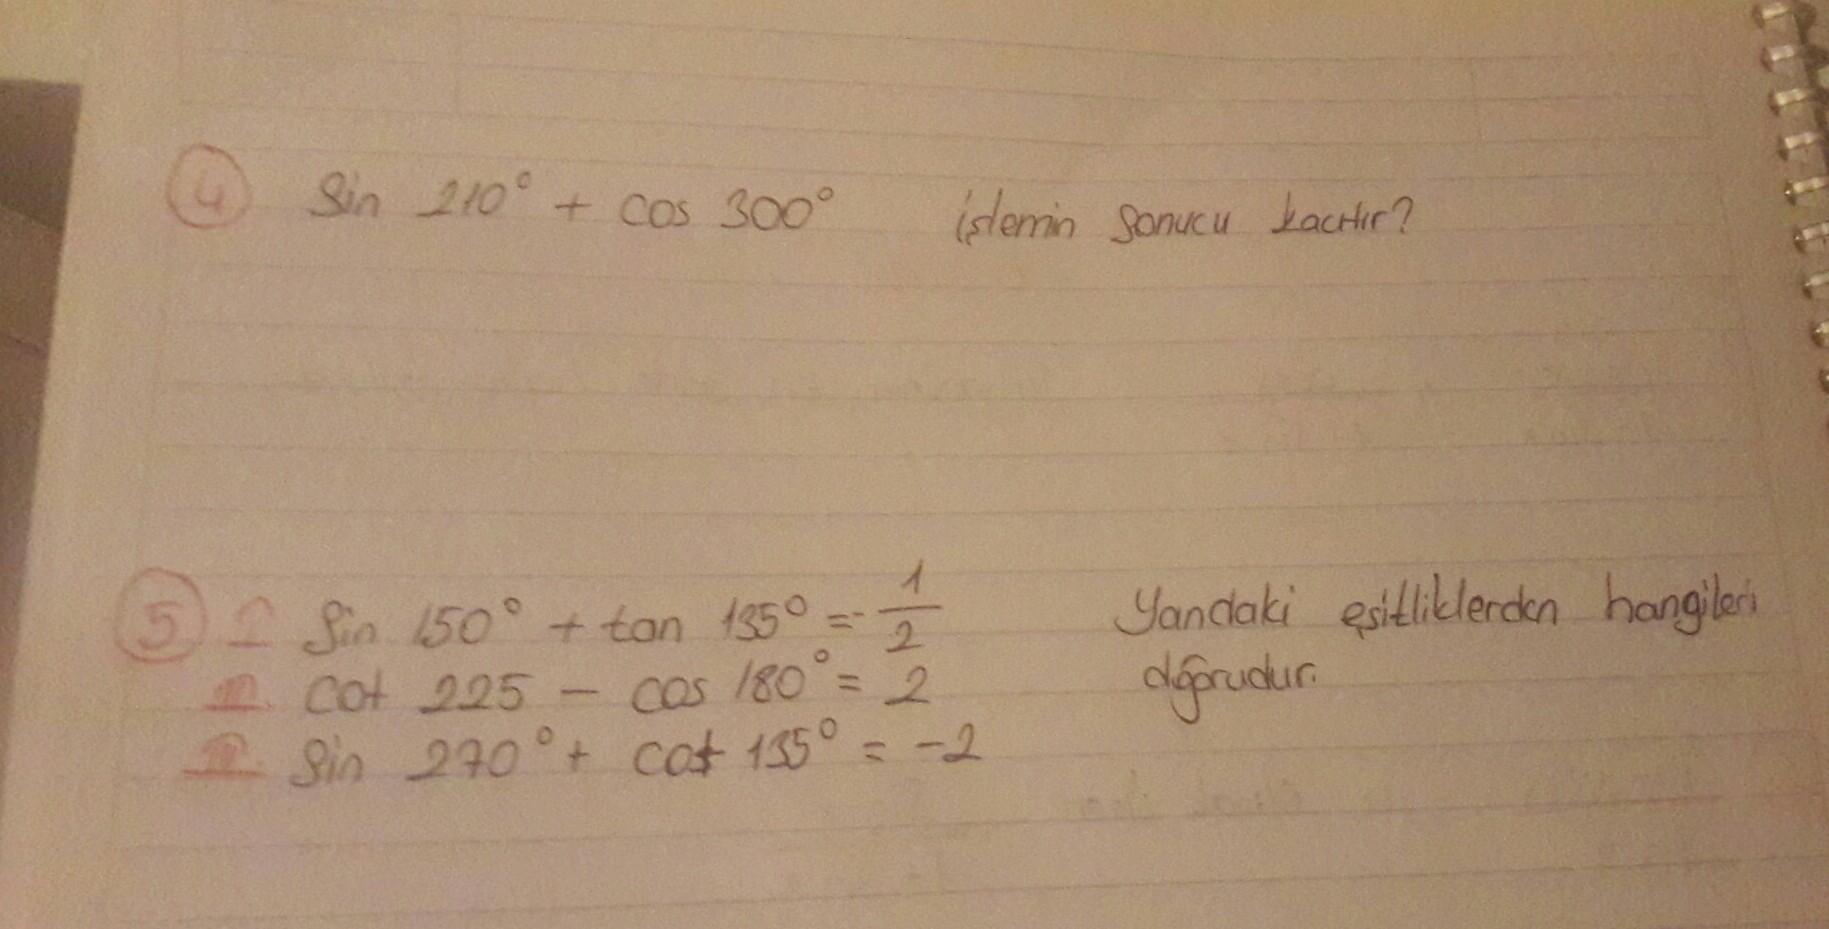 4 Sin 210° + cos 300° işlemin sonucu kaçtır?
5 I Sin 150° + tan 135° = -1/2 Yandaki eşitliklerden hangileri
II. cot 225 - cos 180° = 2 doğrudur.
III. Sin 270° + cot 135° = -2